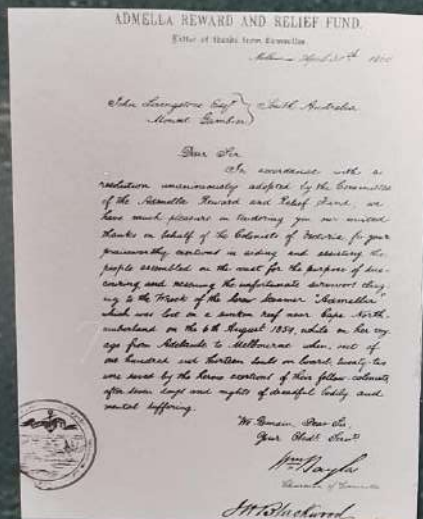 ADMELLA REWARD AND RELIEF FUND.
Letter of thanks from Committee.
Melbourne April 30th
John Livingstone Esqr South Australia
Mount Gambier
Dear Sir
In accordance with a
resolution unanimously adopted by the Committee
of the Admella Reward and Relief Fund, we
have much pleasure in tendering you our united
thanks on behalf of the Colonists of Victoria for your
praiseworthy exertions in aiding and assisting the
people assembled on the coast for the purpose of suc-
couring and rescuing the unfortunate survivors cling-
ing to the Wreck of the Screw Steamer "Admella"
which was lost on a sunken reef near Cape North-
umberland on the 6th August 1859, while on her voy-
age from Adelaide to Melbourne when, out of
one hundred and thirteen souls on board, twenty two
were saved by the heroic exertions of their fellow colonists
after seven days and nights of dreadful bodily and
mental suffering.
We Remain, Dear Sir,
Your Obedt. Servts
Wm Bayles
Chairman of Committee
J H Blackwood